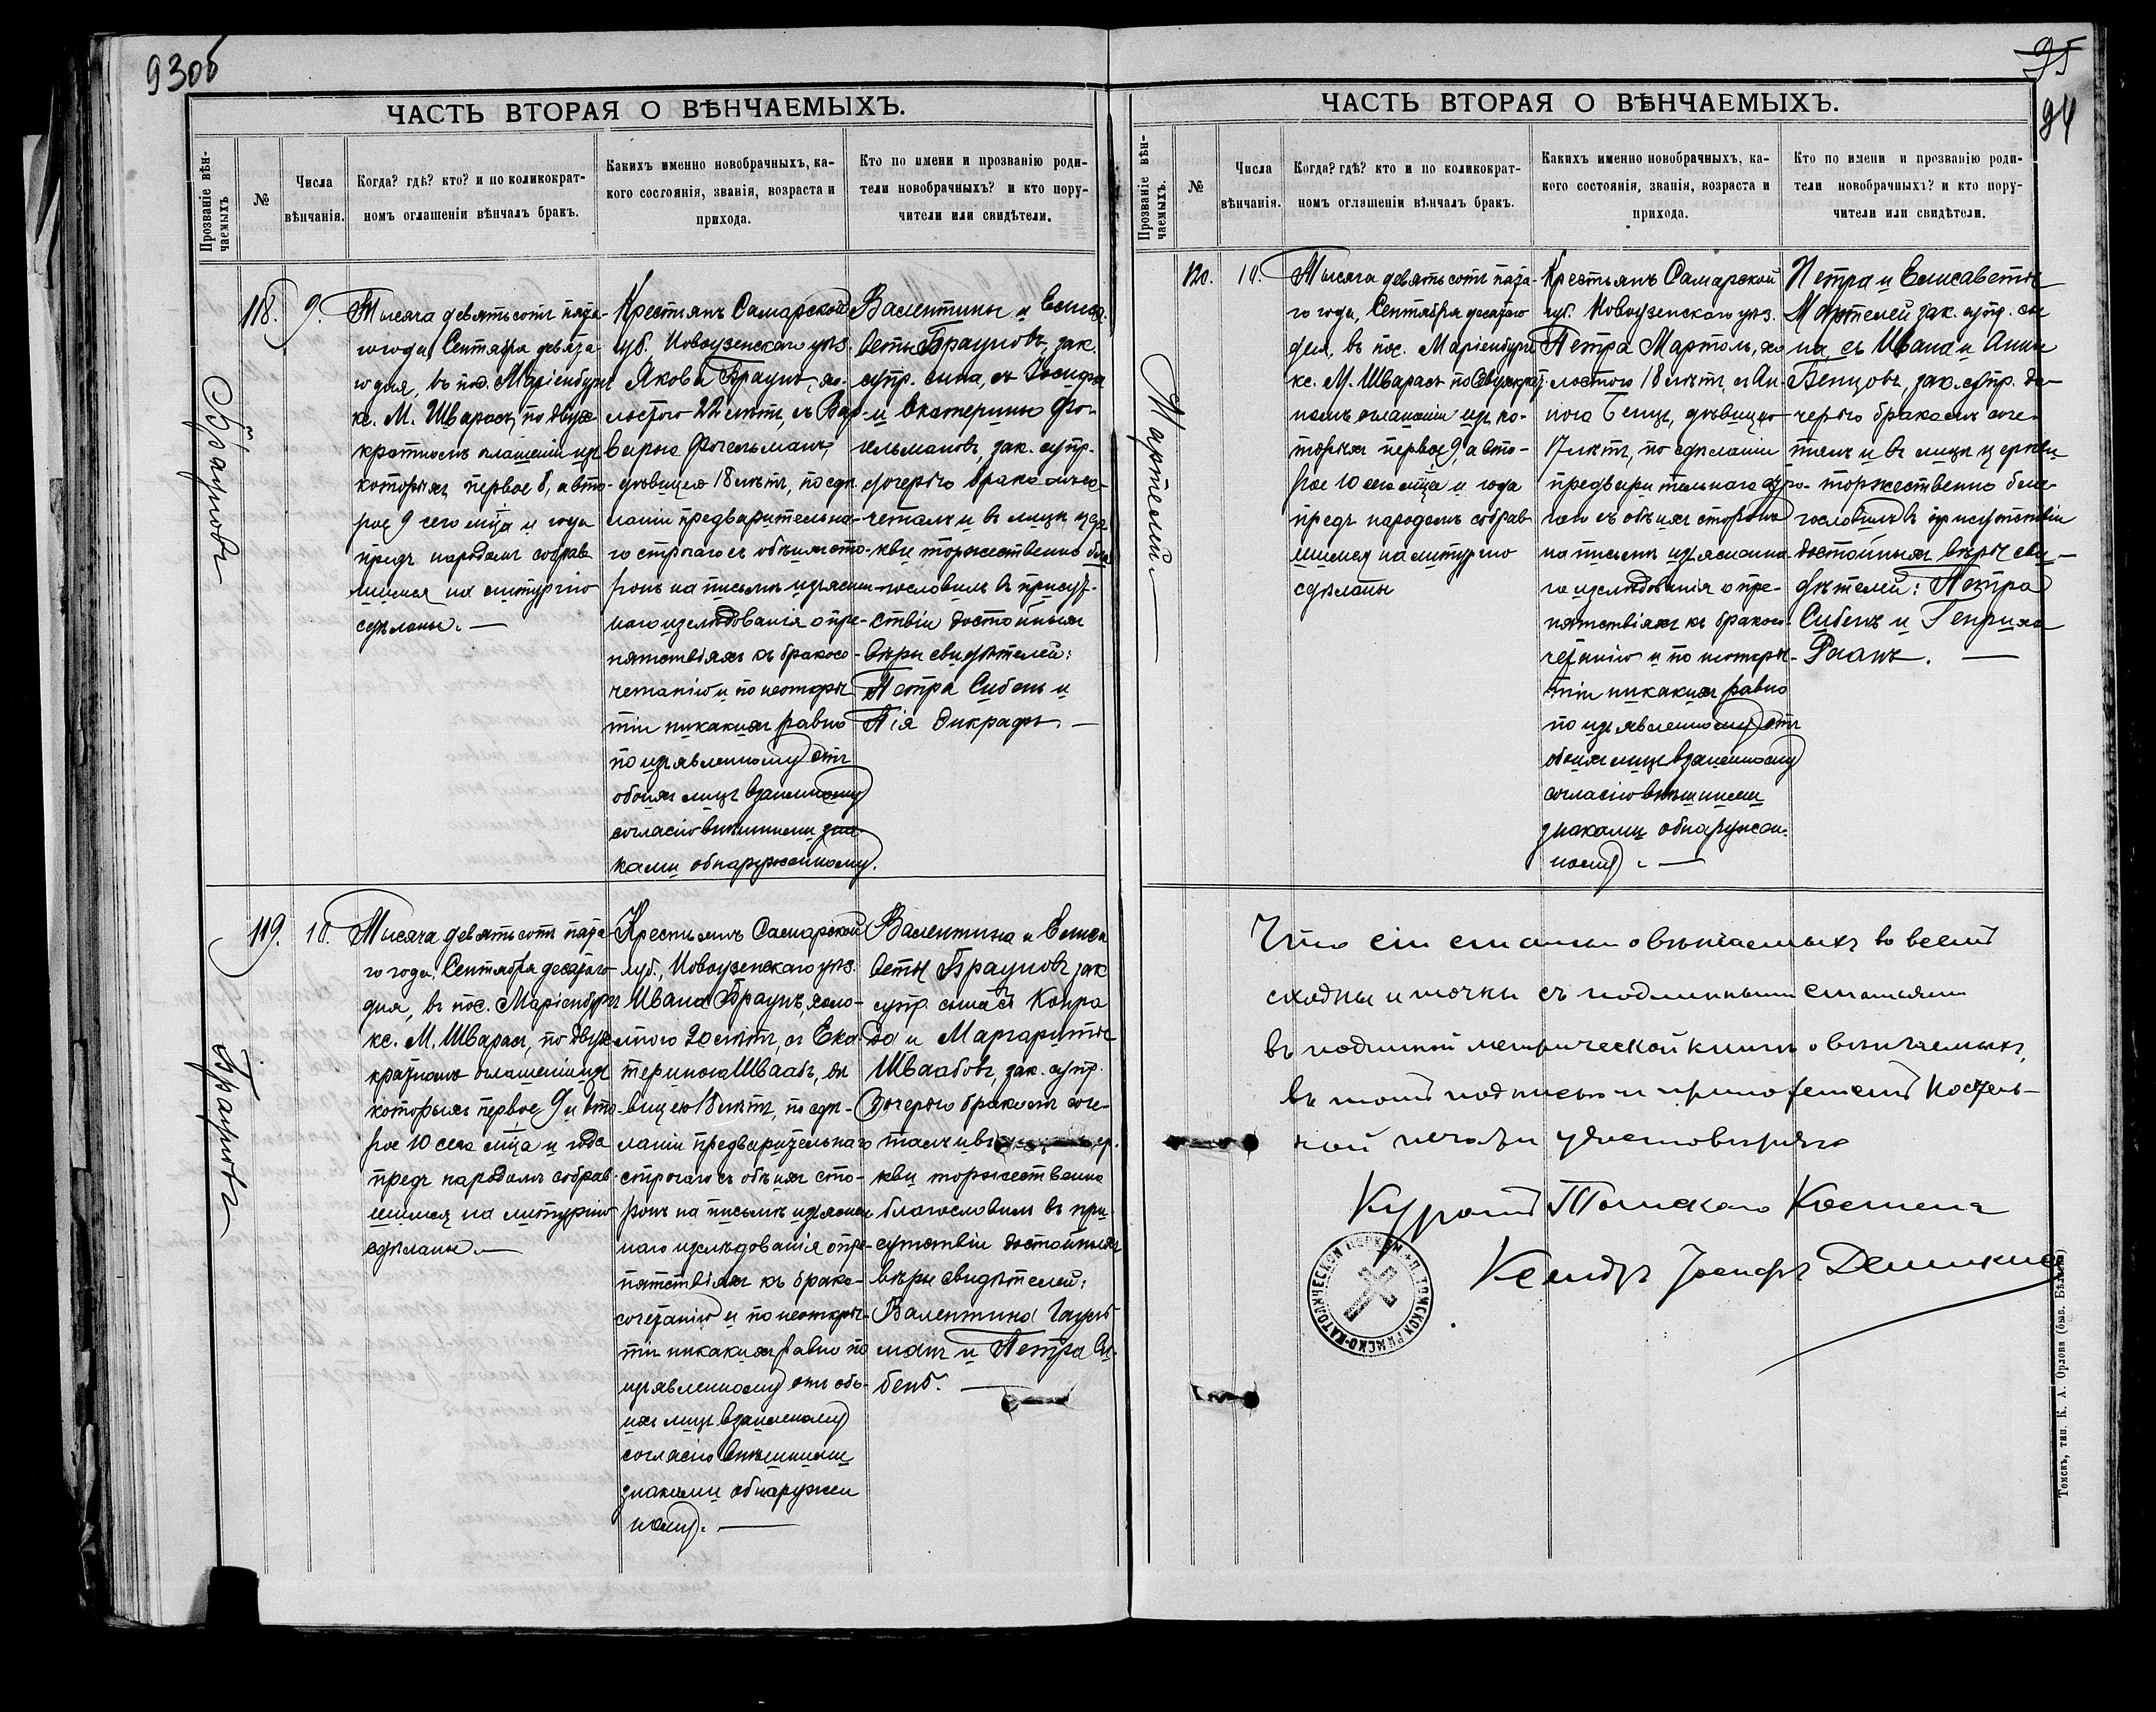 93об
ЧАСТЬ ВТОРАЯ О ВѢНЧАЕМЫХЪ.
Прозваніе вѣн-
чаемыхъ
№
Числа
вѣнчанія.
Когда? гдѣ? кто? и по коликократ-
номъ оглашеніи вѣнчалъ бракъ.
Какихъ именно новобрачныхъ, ка-
кого состоянія, званія, возраста и
прихода.
Кто по имени и прозванію роди-
тели новобрачныхъ? и кто пору-
чители или свидѣтели.
Брауновъ
118.
9.
Тысяча девятьсотъ пята-
го года, Сентября девята
го дня, въ пос. Маріенбургъ
кс. М. Шварасъ, по двух-
кратномъ оглашеніи изъ
которыхъ первое 8, а вто-
рое 9 сего мѣца и года
предъ народомъ собрав
шимся на литургію
сдѣланы. —
Крестьянъ Самарской
губ. Новоузенскаго уѣз.
Якова Браунъ, хо-
лостого 22 лѣтъ, съ Вар-
варою Фогельманъ,
дѣвицею 18 лѣтъ, по сдѣ
ланіи предварительна-
го строгаго съ обѣихъ сто-
ронъ на письмѣ изъяснен-
наго изслѣдованія о пре-
пятствіяхъ къ бракосо-
четанію и по неоткры
тіи никакихъ равно
по изъявленному отъ
обоихъ лицъ взаимному
согласію внѣшними зна-
ками обнаруженному.
Валентины и Елиса
веты Брауновъ, зак.
супр. сына, съ Іосифа
и Екатерины Фо-
гельмановъ, зак. супр.
дочерью бракомъ со-
четалъ и въ лицѣ цер
кви торжественно бла
гословилъ въ присут-
ствіи достойныхъ
вѣры свидѣтелей:
Петра Сибенъ и
Пія Дикрафъ. —
Брауновъ
119.
10.
Тысяча девятьсотъ пята-
го года, Сентября десятаго
дня, въ пос. Маріенбургъ
кс. М. Шварасъ, по двух-
кратномъ оглашеніи изъ
которыхъ первое 9 и вто-
рое 10 сего мѣца и года
предъ народомъ собрав-
шимся на литургію
сдѣланы. —
Крестьянъ Самарской
губ., Новоузенскаго уѣз.
Ивана Браунъ, холо-
стого 20 лѣтъ, съ Ека-
териною Шваабъ, дѣ
вицею 18 лѣтъ, по сдѣ-
ланіи предварительнаго
строгаго съ обѣихъ сто-
ронъ на письмѣ изъяснен
наго изслѣдованія о пре-
пятствіяхъ къ брако-
сочетанію и по неоткры-
тіи никакихъ равно по
изъявленному отъ обо-
ихъ лицъ взаимному
согласію внѣшними
знаками обнаружен
ному. —
Валентина и Елиса
веты Брауновъ зак
супр. сына съ Конра
да и Маргариты
Шваабовъ, зак. супр.
дочерью бракомъ соче-
талъ и въ
кви торжественно
благословилъ въ при-
сутствіи достойныхъ
вѣры свидѣтелей:
Валентина
манъ и Петра Си-
бенъ. —
95
94
ЧАСТЬ ВТОРАЯ О ВѢНЧАЕМЫХЪ.
Прозваніе вѣн-
чаемыхъ.
№
Числа
вѣнчанія.
Когда? гдѣ? кто и по коликократ-
номъ оглашеніи вѣнчалъ бракъ.
Какихъ именно новобрачныхъ, ка-
кого состоянія, званія, возраста и
прихода.
Кто по имени и прозванію роди-
тели новобрачныхъ? и кто пору-
чители или свидѣтели.
Мартелей
120.
10.
Тысяча девятьсотъ пята-
го года, Сентября десятаго
дня, въ пос. Маріенбургъ
кс. М. Шварасъ по двухкрат-
номъ оглашеніи изъ ко-
торыхъ первое 9, а вто-
рое 10 сего мѣца и года
предъ народомъ собрав
шимся на литургію
сдѣланы
Крестьянъ Самарской
губ. Новоузенскаго уѣз.
Петра Мартель, хо
лостого 18 лѣтъ съ Ан-
ною Бенцъ, дѣвицею
17 лѣтъ, по сдѣланіи
предварительнаго стро-
гаго съ обѣихъ сторонъ
на письмѣ изъясненна-
го изслѣдованія о пре-
пятствіяхъ къ бракосо-
четанію и по неоткры-
тіи никакихъ равно
по изъявленному отъ
обоихъ лицъ взаимному
согласію внѣшними
знаками обнаружен-
ному. —
Петра и Елисаветы
Мартелей зак. супр. сы
на, съ Ивана и Анны
Бенцовъ, зак. супр. до-
черью бракомъ соче-
талъ и въ лицѣ церкви
торжественно бла-
гословилъ въ присутствіи
достойныхъ вѣры сви-
дѣтелей: Петра
Сибенъ и Генриха
—
Что сіи статьи о вѣнчаемыхъ во всемъ
сходны и точны съ подлинными статьями
въ подлинной метрической книгѣ о вѣнчаемыхъ,
въ томъ подписью и приложеніемъ костель-
ной печати удостовѣряю
Куратъ Томскаго Костела
Ксендзъ Іосифъ Демикисъ
ТОМСКОЙ РИМСКО-КАТОЛИЧЕСКОЙ ЦЕРКВИ
Томскъ, тип. К. А. Орлова (быв. Бѣльск.)